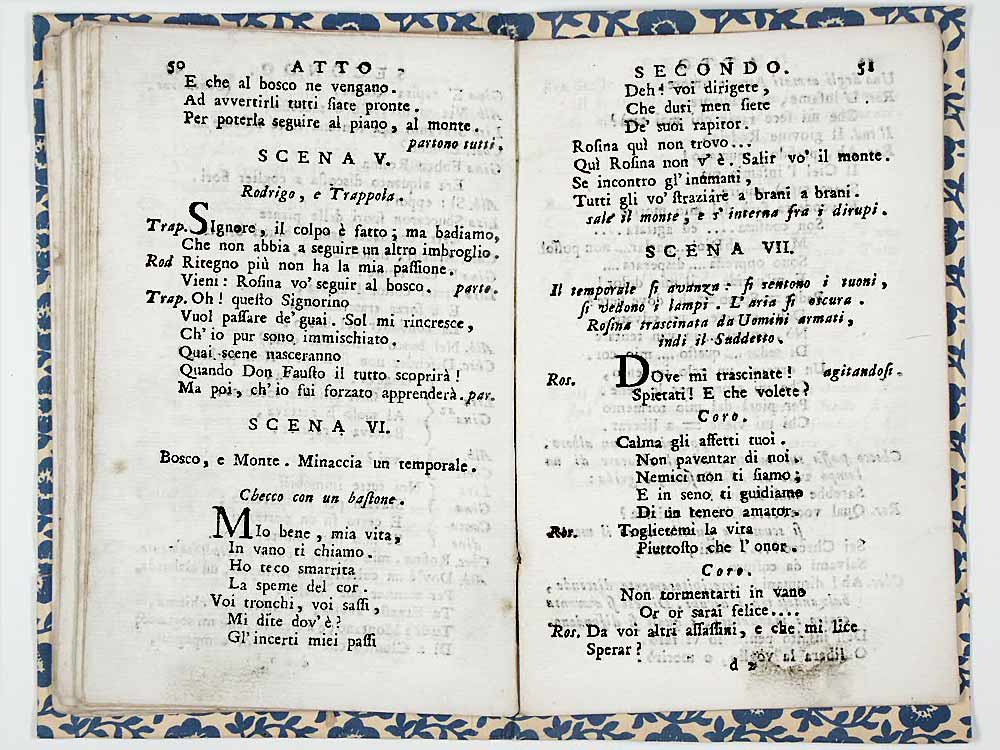 50 ATTO
E che al bosco ne vengano.
Ad avvertirli tutti ſiate pronte.
Per poterla seguire al piano, al monte.
partono tutti.
SCENA V.
Rodrigo, e Trappola.
Trap. SIgnore, il colpo è fatto; ma badiamo,
Che non abbia a seguire un altro imbroglio.
Rod Ritegno più non ha la mia paſſione.
Vieni: Roſina vo' seguir al bosco. parte.
Trap. Oh! queſto Signorino
Vuol paſſare de' guai. Sol mi rincresce,
Ch' io pur sono immischiato.
Quai scene nasceranno
Quando Don Fauſto il tutto scoprirà!
Ma poi, ch' io fui forzato apprenderà. par.
SCENA VI.
Bosco, e Monte. Minaccia un temporale.
Checco con un baſtone.
MIo bene, mia vita,
In vano ti chiamo.
Ho teco smarrita
La speme del cor.
Voi tronchi, voi saſſi,
Mi dite dov' è?
Gl' incerti miei paſſi
SECONDO. 51
Deh! voi dirigete,
Che duri men ſiete
De' suoi rapitor.
Roſina quì non trovo...
Quì Roſina non v' è. Salir vo' il monte.
Se incontro gl' inumani,
Tutti gli vo' ſtraziare a brani a brani.
sale il monte, e s' interna fra i dirupi.
SCENA VII.
Il temporale ſi avanza: ſi sentono i tuoni,
ſi vedono i lampi. L' aria ſi oscura.
Roſina trascinata da Uomini armati,
indi il Suddetto.
Ros. DOve mi trascinate! agitandoſi.
Spietati! E che volete?
Coro.
Calma gli affetti tuoi.
Non paventar di noi.
Nemici non ti ſiamo;
E in seno ti guidiamo
Di un tenero amator.
Ros. Toglietemi la vita
Piuttoſto che l' onor.
Coro.
Non tormentarti in vano
Or or sarai felice....
Ros. Da voi altri aſſaſſini, e che mi lice
Sperar?
d 2